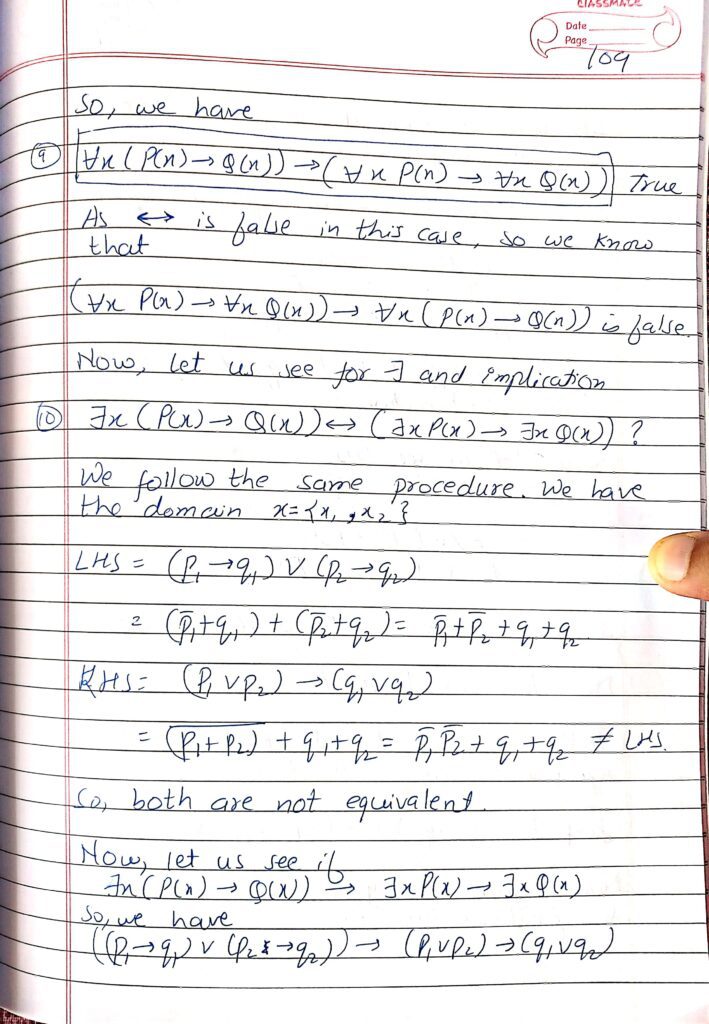 CLASSMATE
Date
Page
109
So, we have
⑨ ∀x (P(x) → Q(x)) → (∀x P(x) → ∀x Q(x)) True
As ↔ is false in this case, so we know
that
(∀x P(x) → ∀x Q(x)) → ∀x (P(x) → Q(x)) is false.
Now, let us see for ∃ and implication
⑩ ∃x (P(x) → Q(x)) ↔ (∃x P(x) → ∃x Q(x)) ?
We follow the same procedure. We have
the domain x = {x₁, x₂}
LHS = (p₁ → q₁) ∨ (p₂ → q₂)
= (p̄₁ + q₁) + (p̄₂ + q₂) = p̄₁ + p̄₂ + q₁ + q₂
RHS = (p₁ ∨ p₂) → (q₁ ∨ q₂)
= (p₁ + p₂)̅ + q₁ + q₂ = p̄₁ p̄₂ + q₁ + q₂ ≠ LHS.
So, both are not equivalent.
Now, let us see if
∃x (P(x) → Q(x)) → ∃x P(x) → ∃x Q(x)
So, we have
((p₁ → q₁) ∨ (p₂ → q₂)) → (p₁ ∨ p₂) → (q₁ ∨ q₂)